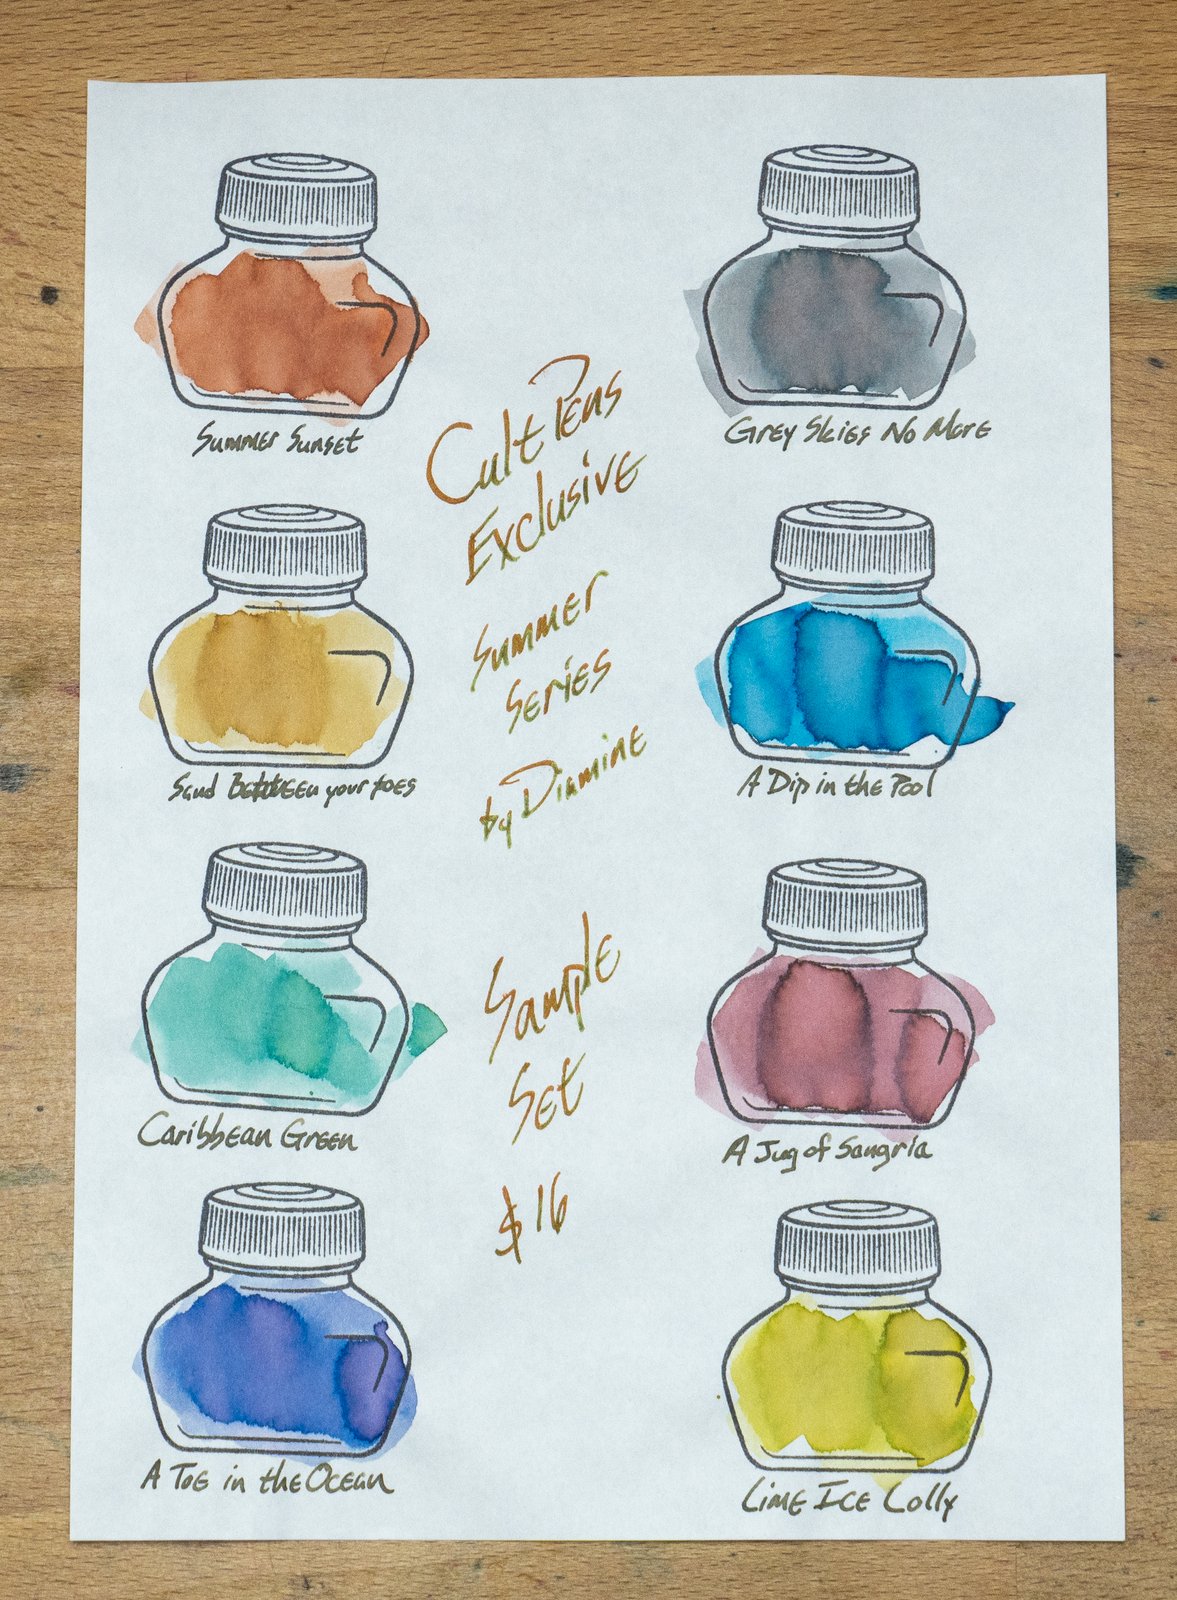 Summer Sunset
Grey Skies No More
Cult Pens
Exclusive
Summer
Series
by Diamine
Sand between your toes
A Dip in the Pool
Caribbean Green
A Jug of Sangria
Sample
Set
$16
A Toe in the Ocean
Lime Ice Lolly